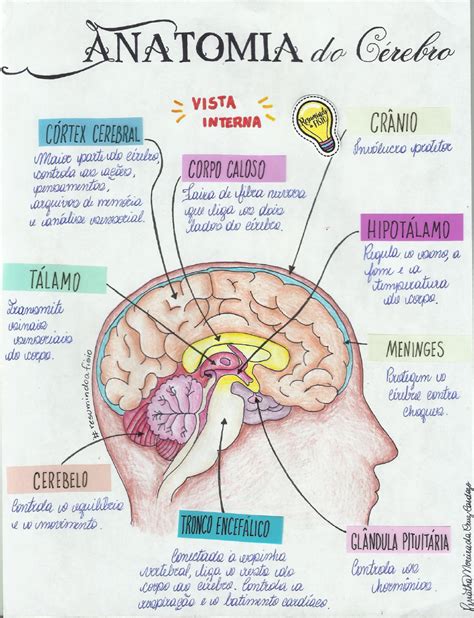 ANATOMIA do Cérebro
VISTA
INTERNA
Resumindo
a Fisio
CRÂNIO
Invólucro protetor
CÓRTEX CEREBRAL
Maior parte do cérebro,
controla as ações,
pensamentos,
arquivos de memória
e análise sensorial.
CORPO CALOSO
Faixa de fibra nervosa
que liga os dois
lados do cérebro.
HIPOTÁLAMO
Regula o sono, a
fome e a
temperatura
do corpo.
TÁLAMO
Transmite
sinais
sensoriais
do corpo.
MENINGES
Protegem o
cérebro contra
choques.
#resumindoafisio
CEREBELO
Controla o equilíbrio
e o movimento.
TRONCO ENCEFÁLICO
Conectado à espinha
vertebral, liga o resto do
corpo ao cérebro. Controla a
respiração e o batimento cardíaco.
GLÂNDULA PITUITÁRIA
Controla os
hormônios.